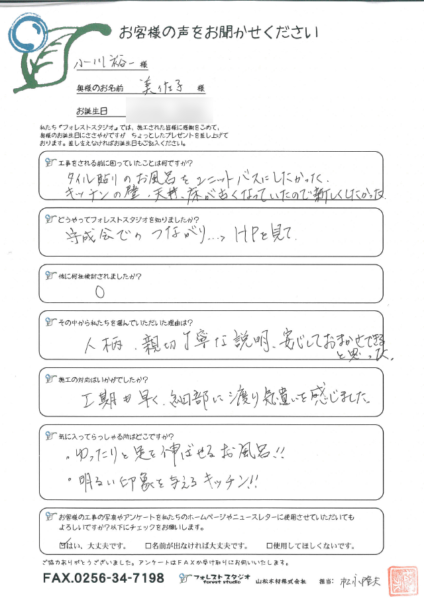 お客様の声をお聞かせください
小川裕一 様
奥様のお名前 美佐子 様
お誕生日
私たち『フォレストスタジオ』では、施工された皆様に感謝をこめて、
奥様のお誕生日にささやかですが ちょっとしたプレゼントを差し上げて
おります。差し支えなければお誕生日もご記入ください。
工事をされる前に困っていたことは何ですか?
タイル貼りのお風呂をユニットバスにしたかった。
キッチンの壁・天井・床が古くなっていたので新しくしたかった
どうやってフォレストスタジオを知りましたか?
守成会でのつながり…→HPを見て
他に何社検討されましたか?
0
その中から私たちを選んでいただいた理由は?
人柄、親切丁寧な説明、安心しておまかせできる
と思った。
施工の対応はいかがでしたか?
工期も早く、細部に渡り気遣いを感じました。
気に入ってらっしゃる所はどこですか?
・ゆったりと足を伸ばせるお風呂!!
・明るい印象を与えるキッチン!!
お客様の工事の写真やアンケートを私たちのホームページやニュースレターに使用させていただいても
よろしいですか?以下にチェックをお願いします。
☑はい、大丈夫です。 □名前が出なければ大丈夫です。 □使用してほしくない です。
ご協力ありがとうございました。アンケートはFAXか受け取りにお伺いいたします。
FAX.0256-34-7198 フォレストスタジオ forest studio 山松木材株式会社 担当: